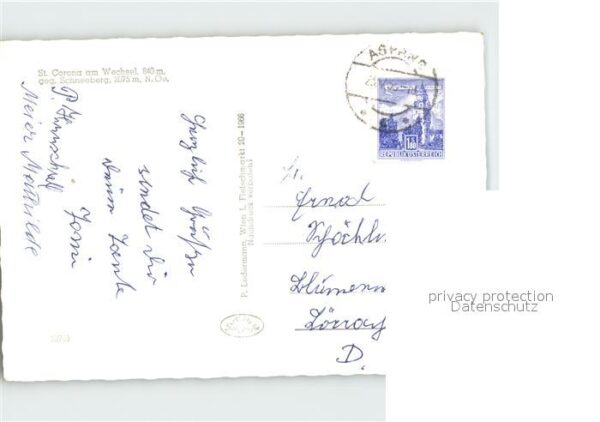 St. Corona am Wechsel, 840 m,
geg. Schneeberg, 2075 m, N.Öe.
Herzlich Grüße
sendet Dir
Deine Tante
Fani
Meier Mathilde
P. Ledermann, Wien I, Fleischmarkt 20 – 1966
Nachdruck verboten!
ASPANG
REPUBLIK ÖSTERREICH
Ernal
Blumen
Lörrach
D.
privacy protection
Datenschutz